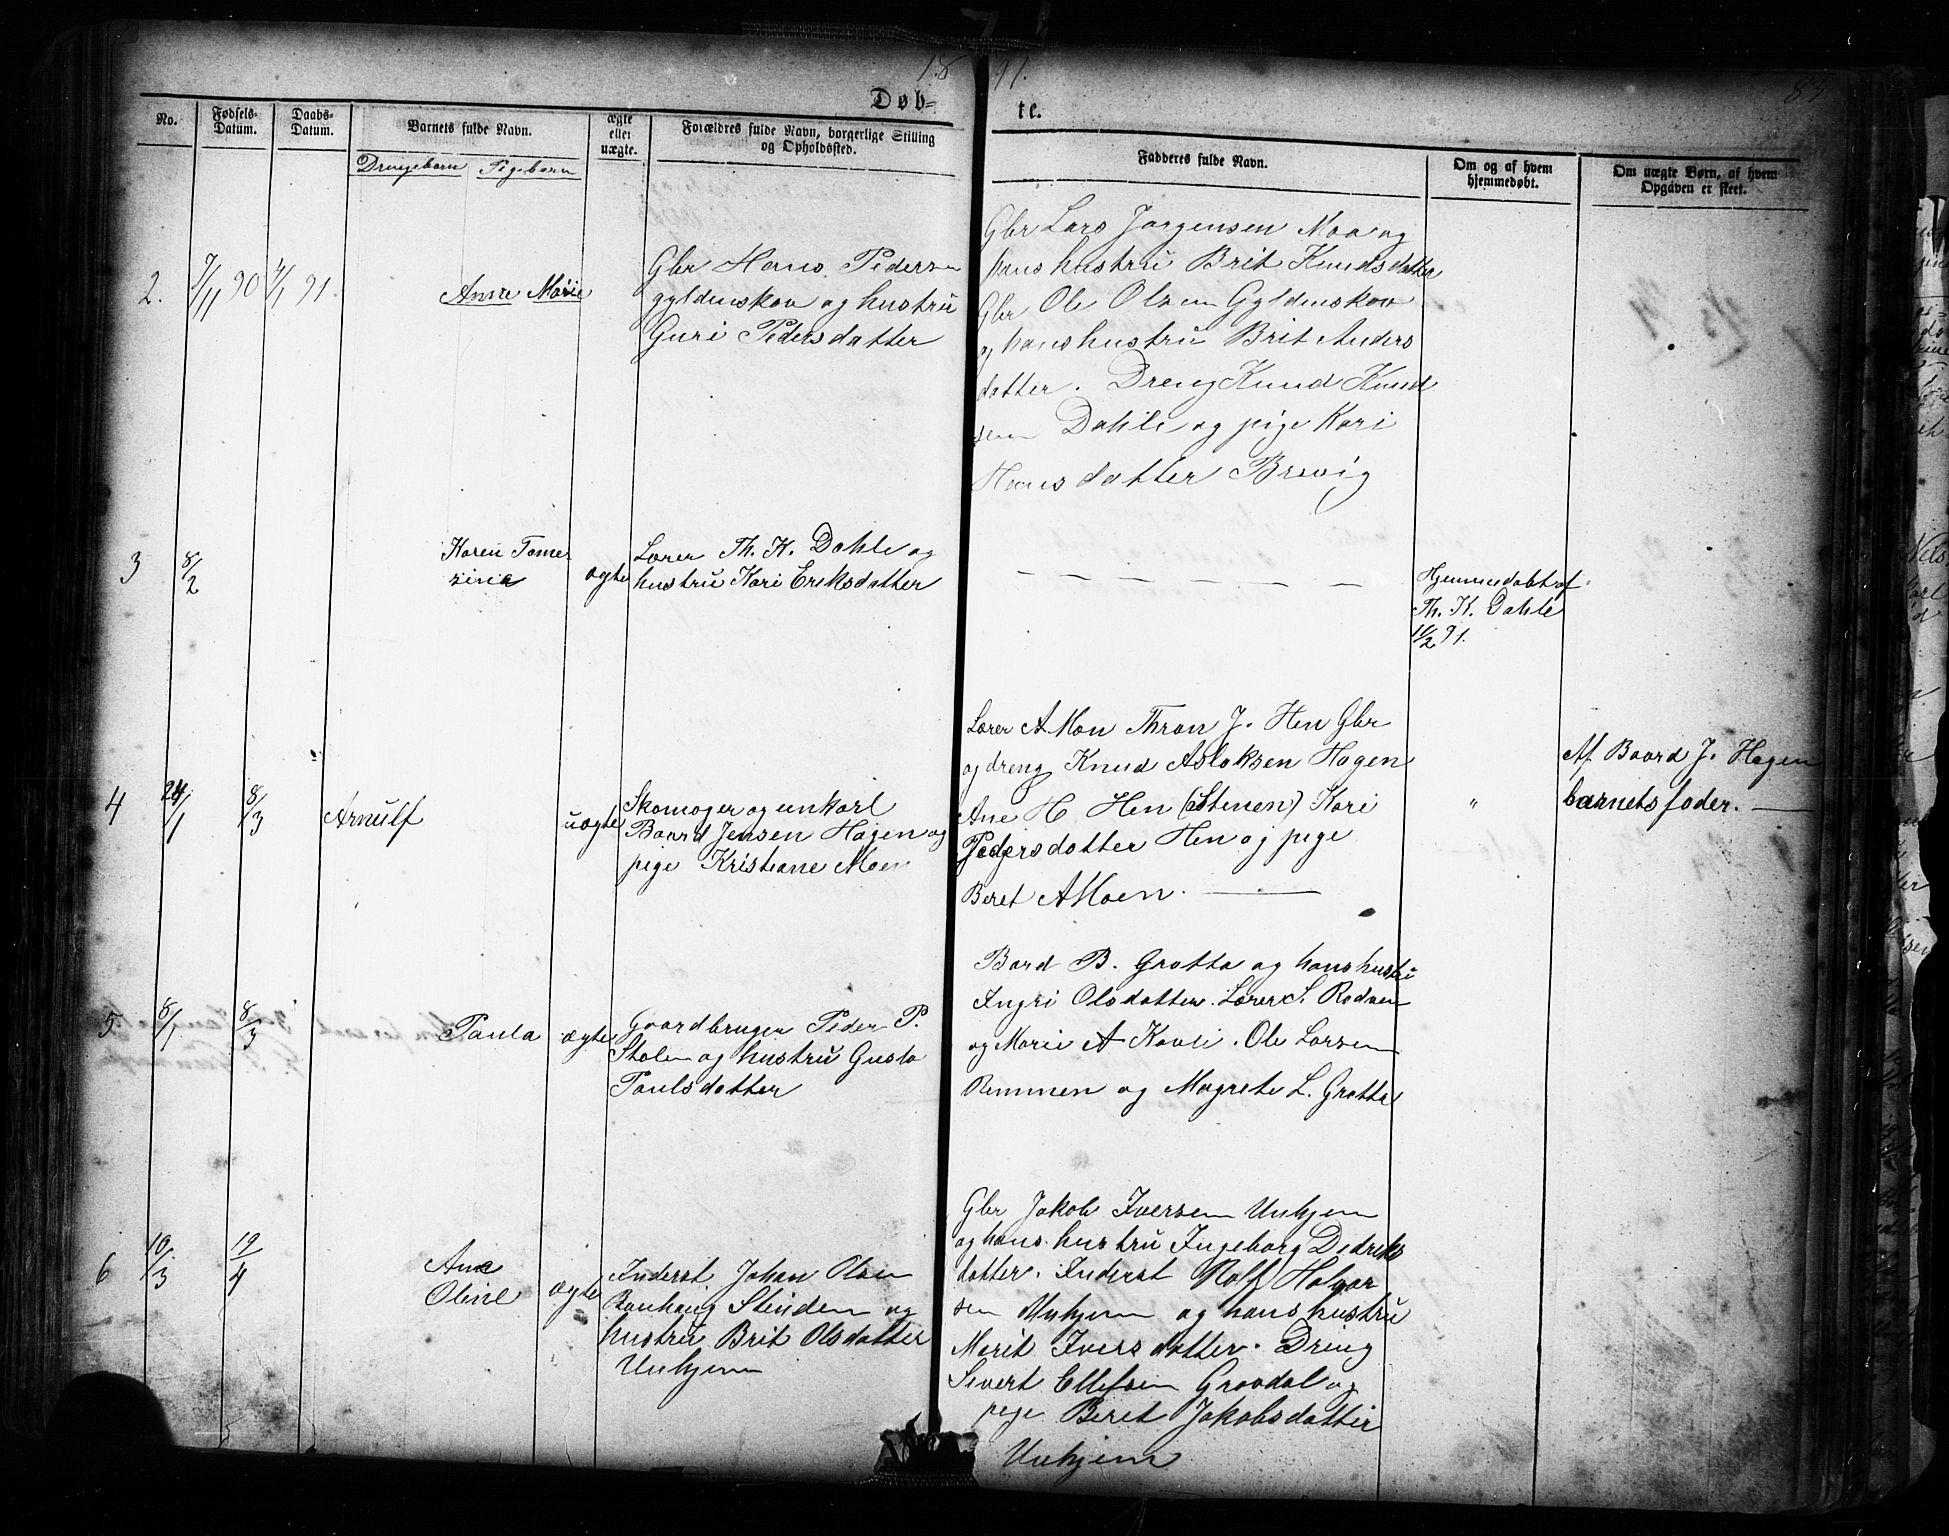 18
91.
83
Døb-
te.
No.
Fødsels-
Datum.
Daabs-
Datum.
Barnets fulde Navn.
Drengebørn
Pigebørn
ægte
eller
uægte.
Forældres fulde Navn, borgerlige Stilling
og Opholdssted.
Fadderes fulde Navn.
Om og af hvem
hjemmedøbt.
Om uægte Børn, af hvem
Opgaven er skeet.
2.
7/11 90
4/1 91.
Anne Marie
Gbr Hans Pedersen
gyldenskov og hustru
Guri Pedersdatter
Gbr Lars Jørgensen Moa og
hans hustru Brit Knudsdatter
Gbr Ole Olsen Gyldenskov
og hans hustru Brit Anders
datter. Dreng Knud Knud
sen Dahle og pige Kari
Hansdatter Brevig
3
8/2
Karen Tome-
sine
ægte
Lærer Th. K. Dahle og
hustru Kari Eriksdatter
— — — — — —
Hjemmedøbt af
Th. K. Dahle
11/2 91.
4
24/1
8/3
Arnulf
uægte
Skomager og unkarl
Baard Jensen Hagen og
pige Kristiane Moen
Lærer A Moen Thron J. Hen Gbr
og dreng Knud Aslaksen Hagen
Ane H. Hen (Stenen) Kari
Pedersdatter Hen og pige
Beret A Moen. —
"
Af Baard J. Hagen
barnets fader. —
5
8/1
8/3
Paula
ægte
Gaardbruger Peder P.
Stolen og hustru Gusta
Paulsdatter
Bard B. Grotta og hans hustru
Ingri Olsdatter. Lærer S. Rødven
og Marie A Kavli. Ole Larsen
Remmen og Magrete L. Grotta
6
10/3
19/4
Ane
Oline
ægte
Inderst Johan Olsen
Rauhaug Stenden og
hustru Brit Olsdatter
Unhjem
Gbr Jakob Iversen Unhjem
og hans hustru Ingeborg Dedriks
datter. Inderst Rolf Halvor
sen Unhjem og hans hustru
Marit Iversdatter. Dreng
Sivert Ellefsen Grovdal og
pige Beret Jakobsdatter
Unhjem